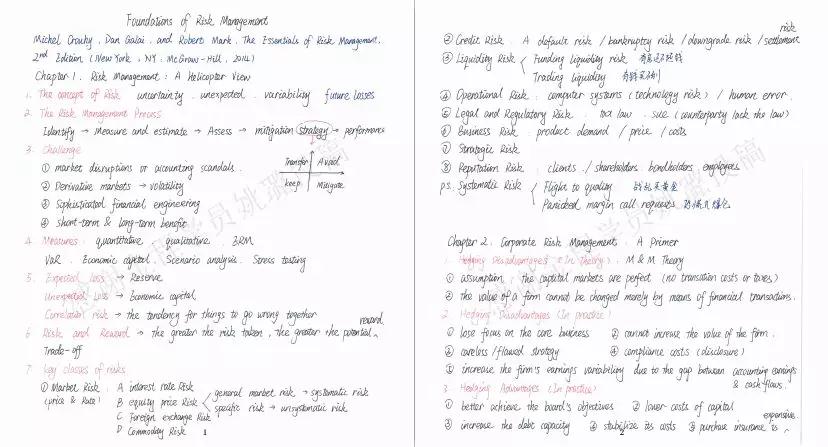 Foundations of Risk Management
Michel Crouhy, Dan Galai, and Robert Mark, The Essentials of Risk Management,
2nd Edition (New York, NY: McGraw-Hill, 2014)
Chapter 1. Risk Management: A Helicopter View
1. The concept of Risk uncertainty . unexpected . variability future losses
2. The Risk Management Process
Identify → Measure and estimate → Assess → mitigation strategy → performance
Transfer Avoid
keep Mitigate
3. Challenge
① market disruptions or accounting scandals.
② Derivative markets → volatility
③ Sophisticated financial engineering
④ short-term & long-term benefit
4. Measures: quantitative . qualitative . ERM
VaR . Economic capital . Scenario analysis . Stress testing
5. Expected Loss → Reserve
Unexpected Loss → Economic capital
Correlation risk → the tendency for things to go wrong together
6. Risk and Reward → the greater the risk taken, the greater the potential reward
Trade-off
7. key classes of risks
① Market Risk . A interest rate Risk
(price & Rate) B equity price Risk
general market risk → systematic risk
specific risk → unsystematic risk
C Foreign exchange Risk
D Commodity Risk
1
② Credit Risk . A default risk / bankruptcy risk / downgrade risk / settlement risk
③ Liquidity Risk Funding liquidity risk
Trading liquidity
④ Operational Risk : computer systems (technology risk) / human error.
⑤ Legal and Regulatory Risk : tax law . sue (counterparty lack the law)
⑥ Business Risk product demand / price / costs
⑦ Strategic Risk
⑧ Reputation Risk clients / shareholders bondholders employees
p.s. Systematic Risk Flight to quality 战乱买黄金
Panicked margin call requests
Chapter 2. Corporate Risk Management : A Primer
1. Hedging Disadvantages (In theory) : M & M Theory
① assumption : the capital markets are perfect (no transition costs or taxes)
② the value of a firm cannot be changed merely by means of financial transactions.
2. Hedging Disadvantages (In practice)
① lose focus on the core business ② cannot increase the value of the firm.
③ careless / flawed strategy ④ compliance costs (disclosure)
⑤ increase the firm's earnings variability due to the gap between accounting earnings
& cash flows.
3. Hedging Advantages (In practice)
① better achieve the board's objectives ② lower costs of capital
③ increase the debt capacity ④ stabilize its costs ⑤ purchase insurance is expensive.
2